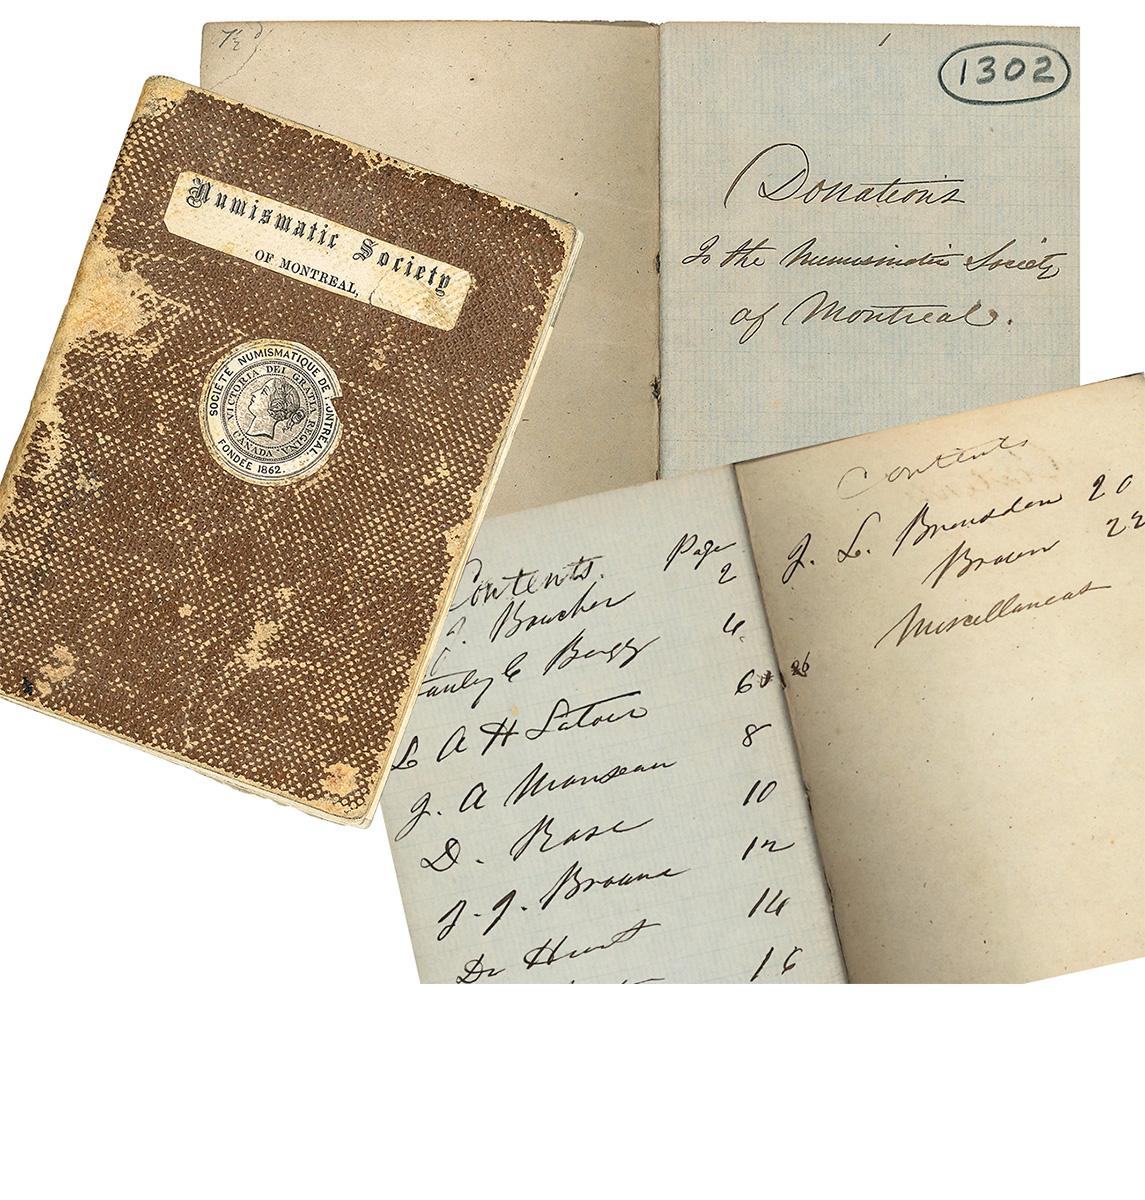 Numismatic Society
OF MONTREAL,
SOCIÉTÉ NUMISMATIQUE DE MONTREAL,
FONDÉE 1862.
VICTORIA DEI GRATIA REGINA
CANADA
7½
1
1302
Donations
To the Numismatic Society
of Montreal.
Contents. Page
Boucher 2
Stanley C Bagg 4
L A H Latour 6
J. A Manseau 8
D. Rose 10
J. J. Browne 12
Dr Hunt 14
16
Contents
J. L. Bronsdon 20
Brown 22
Miscellaneous
26